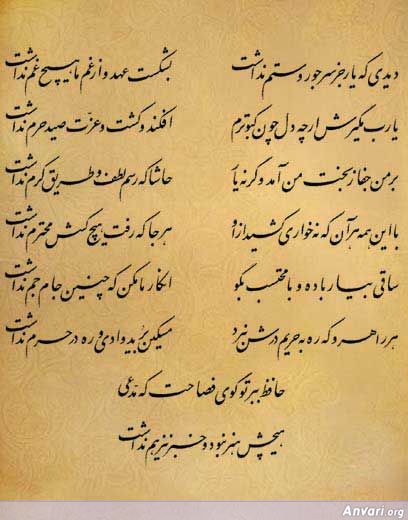 دیدی که یار جز سر جور و ستم نداشت بشکست عهد و از غم ما هیچ غم نداشت
یارب مگیرش ارچه دل چون کبوترم افکند و کشت و عزّت صید حرم نداشت
بر من جفا ز بخت من آمد وگرنه یار حاشا که رسم لطف و طریق کرم نداشت
با این همه هر آن که نه خواری کشید ازو هر جا که رفت هیچ کسش محترم نداشت
ساقی بیار باده و با محتسب بگو انکار ما مکن که چنین جام جم نداشت
هر راهرو که ره به حریم درش نبرد مسکین برید وادی و ره در حرم نداشت
حافظ ببر تو گوی فصاحت که مدّعی
هیچش هنر نبود و خبر نیز هم نداشت
Anvari.org